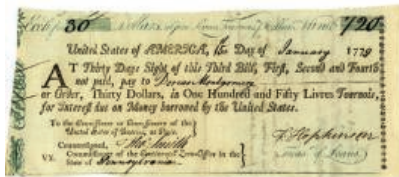 Exch. for 30 Dollars 720
United States of AMERICA, the Day of January 1779
AT Thirty Days Sight of this Third Bill, First, Second and Fourth
not paid, pay to Dorcas Montgomery
or Order, Thirty Dollars, in One Hundred and Fifty Livres Tournois,
for Interest due on Money borrowed by the United States.
To the Commissioner or Commissioners of the
United States of America, at Paris.
Countersigned, Tho Smith F Hopkinson
Commissioner of the Continental Loan-Office in the Treasurer of Loans
State of Pennsylvania